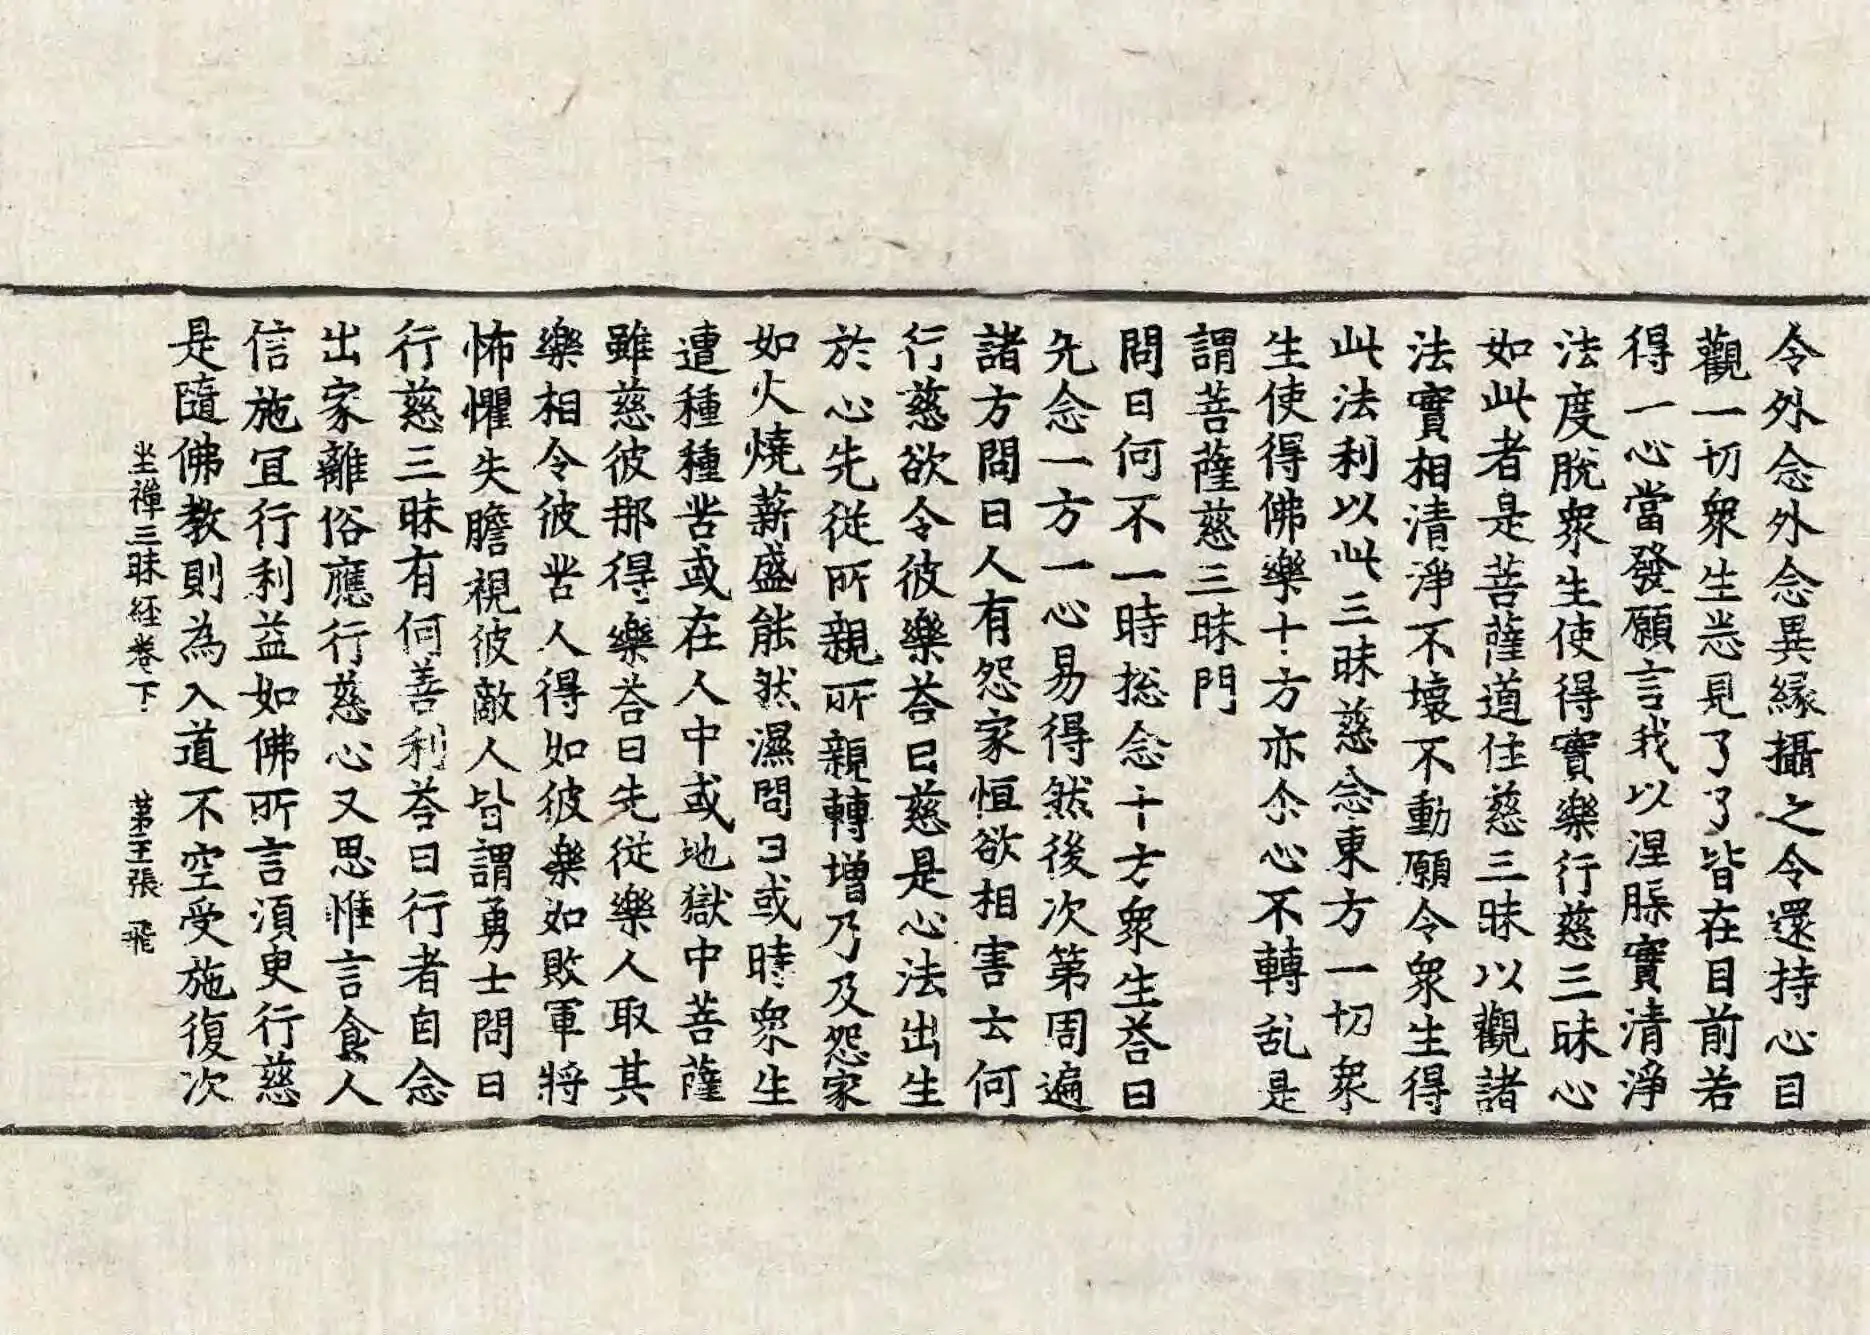 令外念外念異緣攝之令還持心目
觀一切衆生悉見了了皆在目前若
得一心當發願言我以涅槃實清淨
法度脫衆生使得實樂行慈三昧心
如此者是菩薩道住慈三昧以觀諸
法實相清淨不壞不動願令衆生得
此法利以此三昧慈念東方一切衆
生使得佛樂十方亦尒心不轉乱是
謂菩薩慈三昧門
問曰何不一時揔念十方衆生荅曰
先念一方一心易得然後次第周遍
諸方問曰人有怨家恒欲相害云何
行慈欲令彼樂荅曰慈是心法出生
於心先從所親所親轉增乃及怨家
如火燒薪盛能然濕問曰或時衆生
遭種種苦或在人中或地獄中菩薩
雖慈彼那得樂荅曰先從樂人取其
樂相令彼苦人得如彼樂如敗軍將
怖懼失膽視彼敵人皆謂勇士問曰
行慈三昧有何善利荅曰行者自念
出家離俗應行慈心又思惟言食人
信施宜行利益如佛所言湏臾行慈
是隨佛教則為入道不空受施復次
坐禪三昧経卷下 第王張 飛